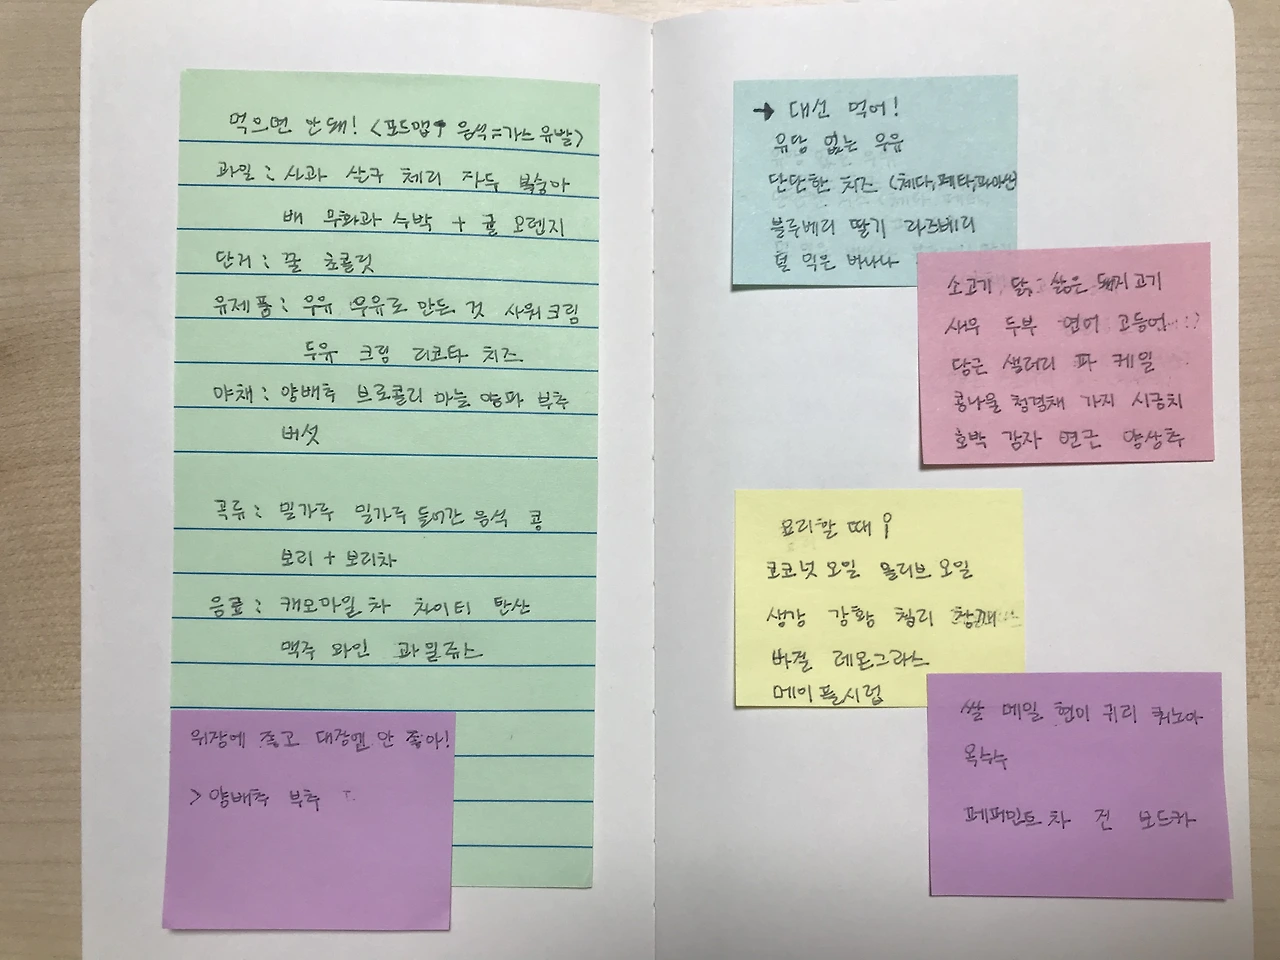 먹으면 안돼! <포드맵↑ 음식=가스유발>
과일 : 사과 살구 체리 자두 복숭아
배 무화과 수박 + 귤 오렌지
단거 : 꿀 초콜릿
유제품 : 우유 우유로 만든 것 사워크림
두유 크림 리코타 치즈
야채 : 양배추 브로콜리 마늘 양파 부추
버섯
곡류 : 밀가루 밀가루 들어간 음식 콩
보리 + 보리차
음료 : 캐모마일 차 차이티 탄산
맥주 와인 과일쥬스
위장에 좋고 대장엔 안 좋아!
> 양배추 부추
→ 대신 먹어!
유당 없는 우유
단단한 치즈 (체다, 페타, 파마산)
블루베리 딸기 라즈베리
덜 익은 바나나
소고기 닭, 삶은 돼지고기
새우 두부 연어 고등어
당근 샐러리 파 케일
콩나물 청경채 가지 시금치
호박 감자 연근 양상추
요리할 때!
코코넛 오일 올리브 오일
생강 강황 칠리 참깨
바질 레몬그라스
메이플시럽
쌀 메밀 현미 귀리 퀴노아
옥수수
페퍼민트 차 진 보드카